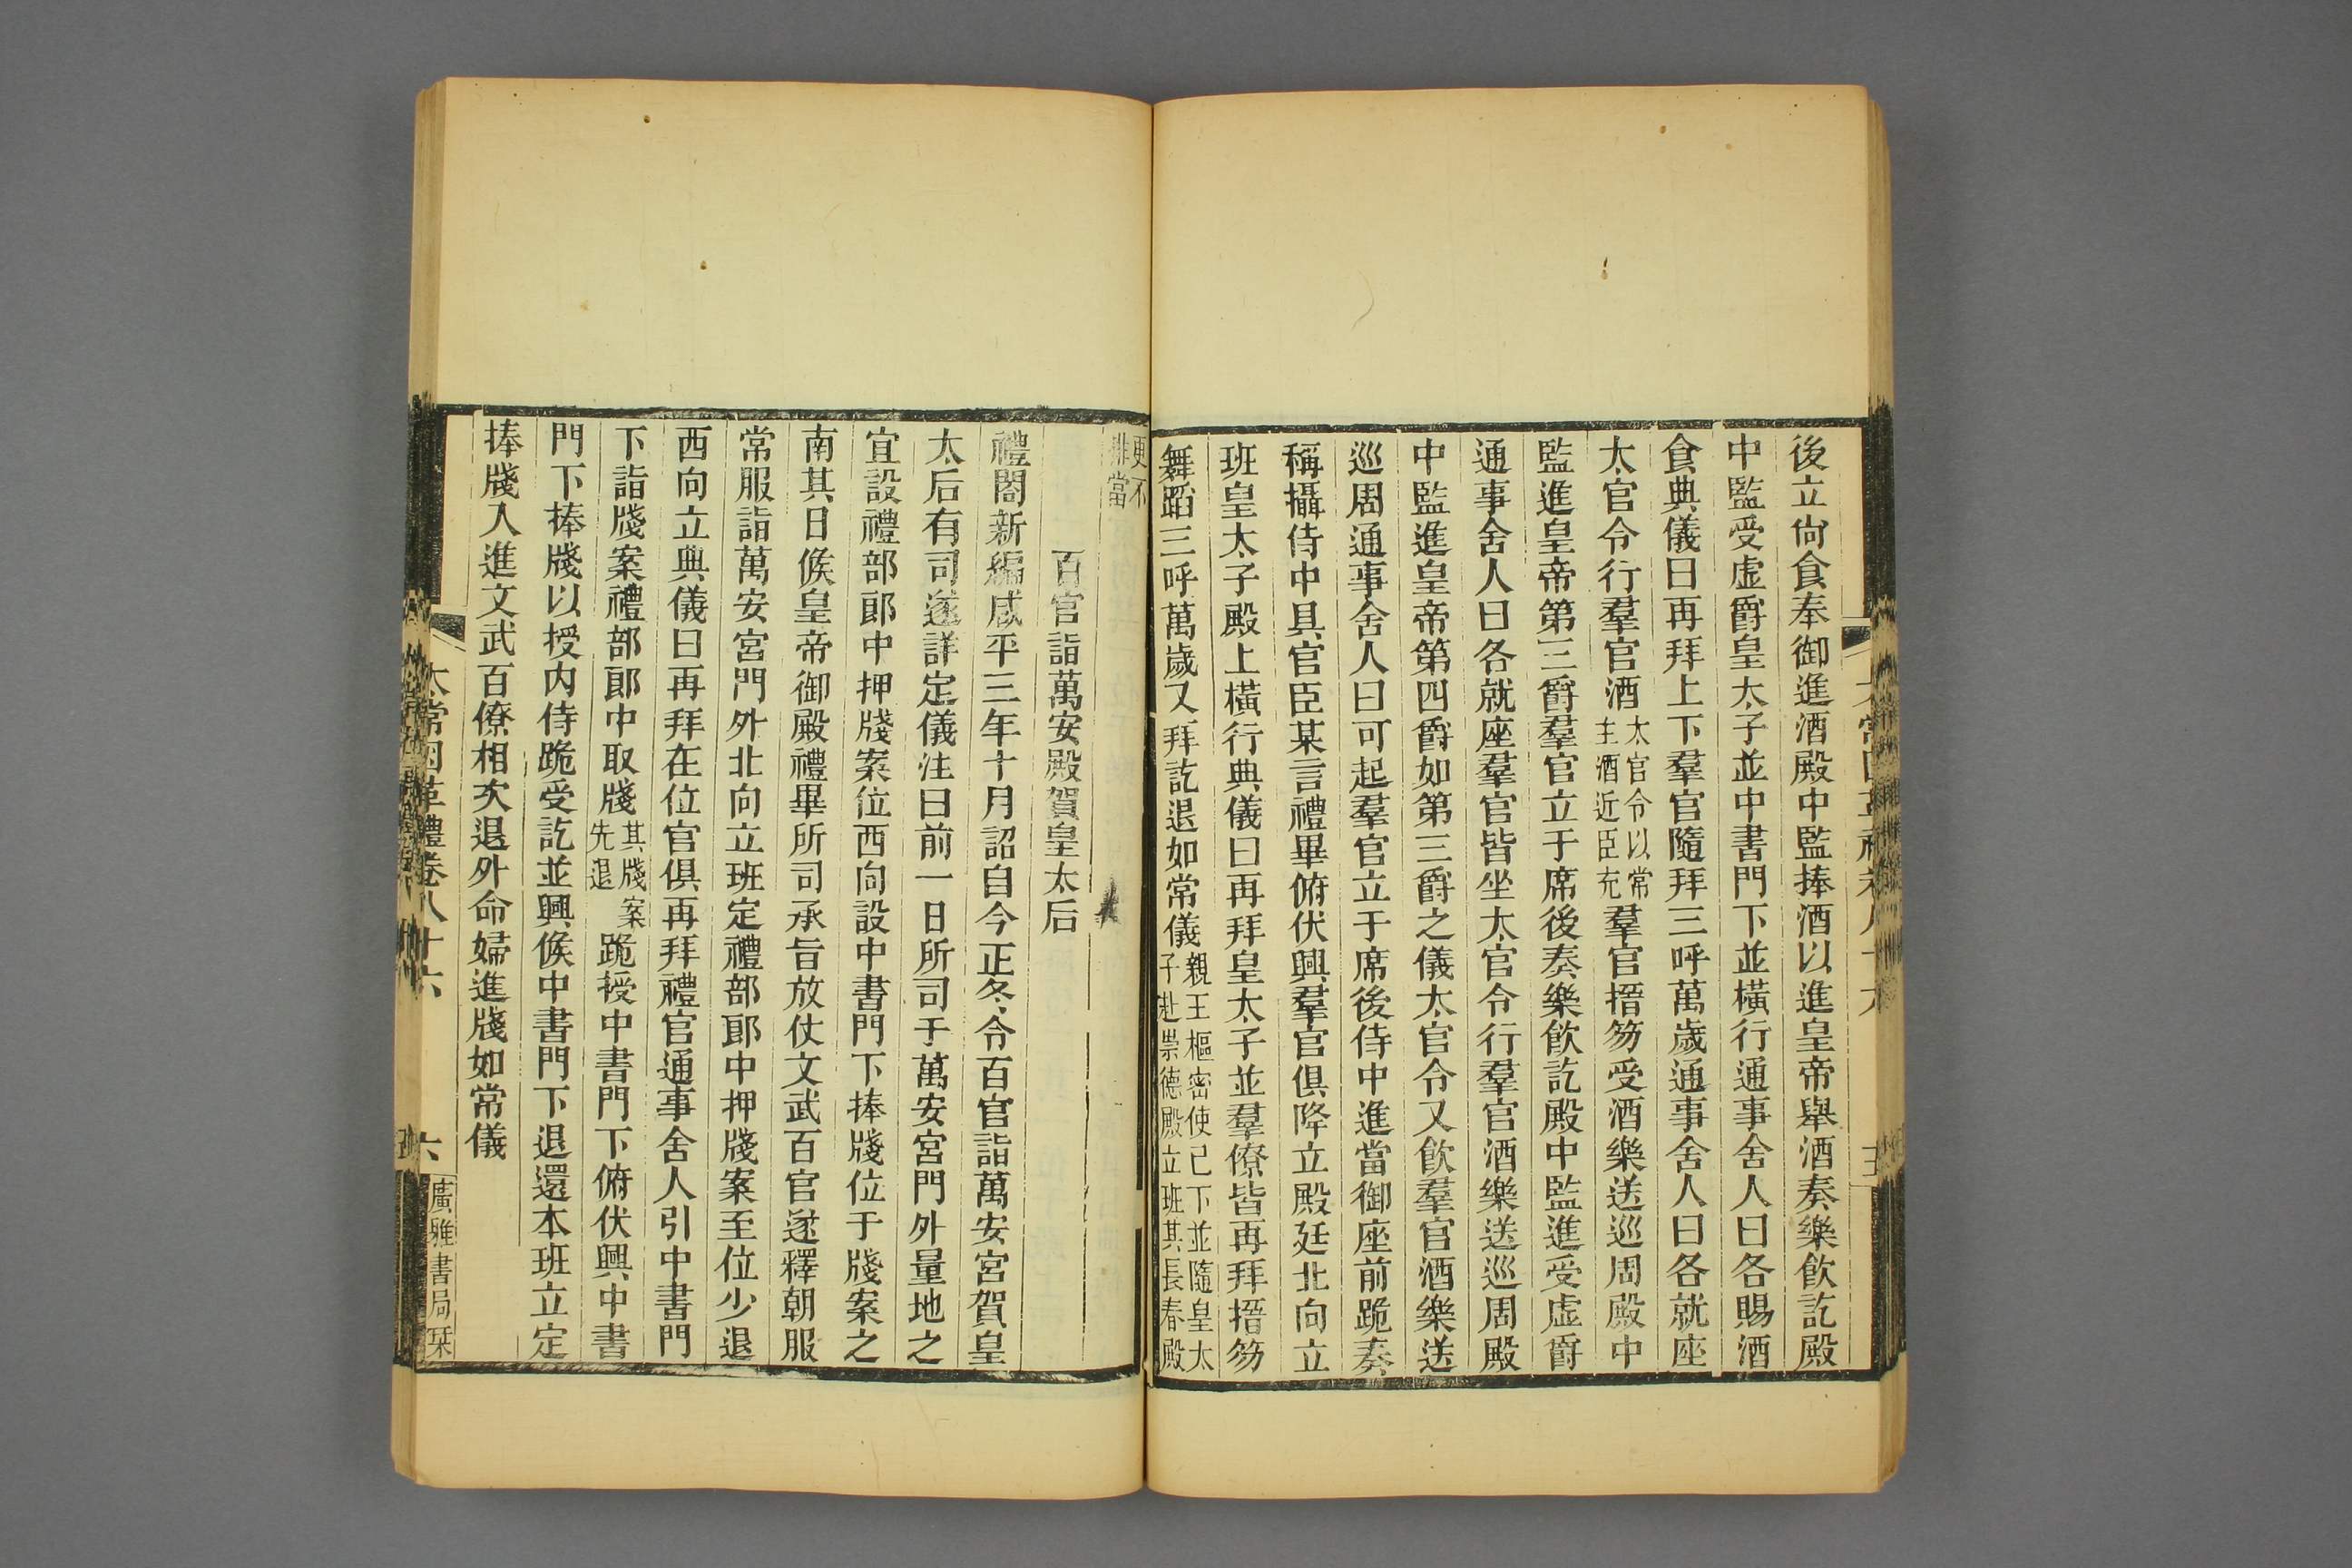 後立尙食奉御進酒殿中監捧酒以進皇帝舉酒奏樂飮訖殿
中監受虛爵皇太子並中書門下並橫行通事舍人曰各賜酒
食典儀曰再拜上下羣官隨拜三呼萬歲通事舍人曰各就座
太官令行羣官酒太官令以常主酒近臣充羣官搢笏受酒樂送巡周殿中
監進皇帝第三爵羣官立于席後奏樂飮訖殿中監進受虛爵
通事舍人曰各就座羣官皆坐太官令行羣官酒樂送巡周殿
中監進皇帝第四爵如第三爵之儀太官令又飮羣官酒樂送
巡周通事舍人曰可起羣官立于席後侍中進當御座前跪奏
稱攝侍中具官臣某言禮畢俯伏興羣官俱降立殿廷北向立
班皇太子殿上橫行典儀曰再拜皇太子並羣僚皆再拜搢笏
舞蹈三呼萬歲又拜訖退如常儀親王樞密使已下並隨皇太子赴崇德殿立班其長春殿
更不排當
百官詣萬安殿賀皇太后
禮閣新編咸平三年十月詔自今正冬令百官詣萬安宮賀皇
太后有司遂詳定儀注曰前一日所司于萬安宮門外量地之
宜設禮部郞中押牋案位西向設中書門下捧牋位于牋案之
南其日候皇帝御殿禮畢所司承旨放仗文武百官遂釋朝服
常服詣萬安宮門外北向立班定禮部郞中押牋案至位少退
西向立典儀曰再拜在位官俱再拜禮官通事舍人引中書門
下詣牋案禮部郞中取牋其牋案先退跪授中書門下俯伏興中書
門下捧牋以授内侍跪受訖並興候中書門下退還本班立定
捧牋入進文武百僚相次退外命婦進牋如常儀
太常因革禮卷八十六
六
廣雅書局栞